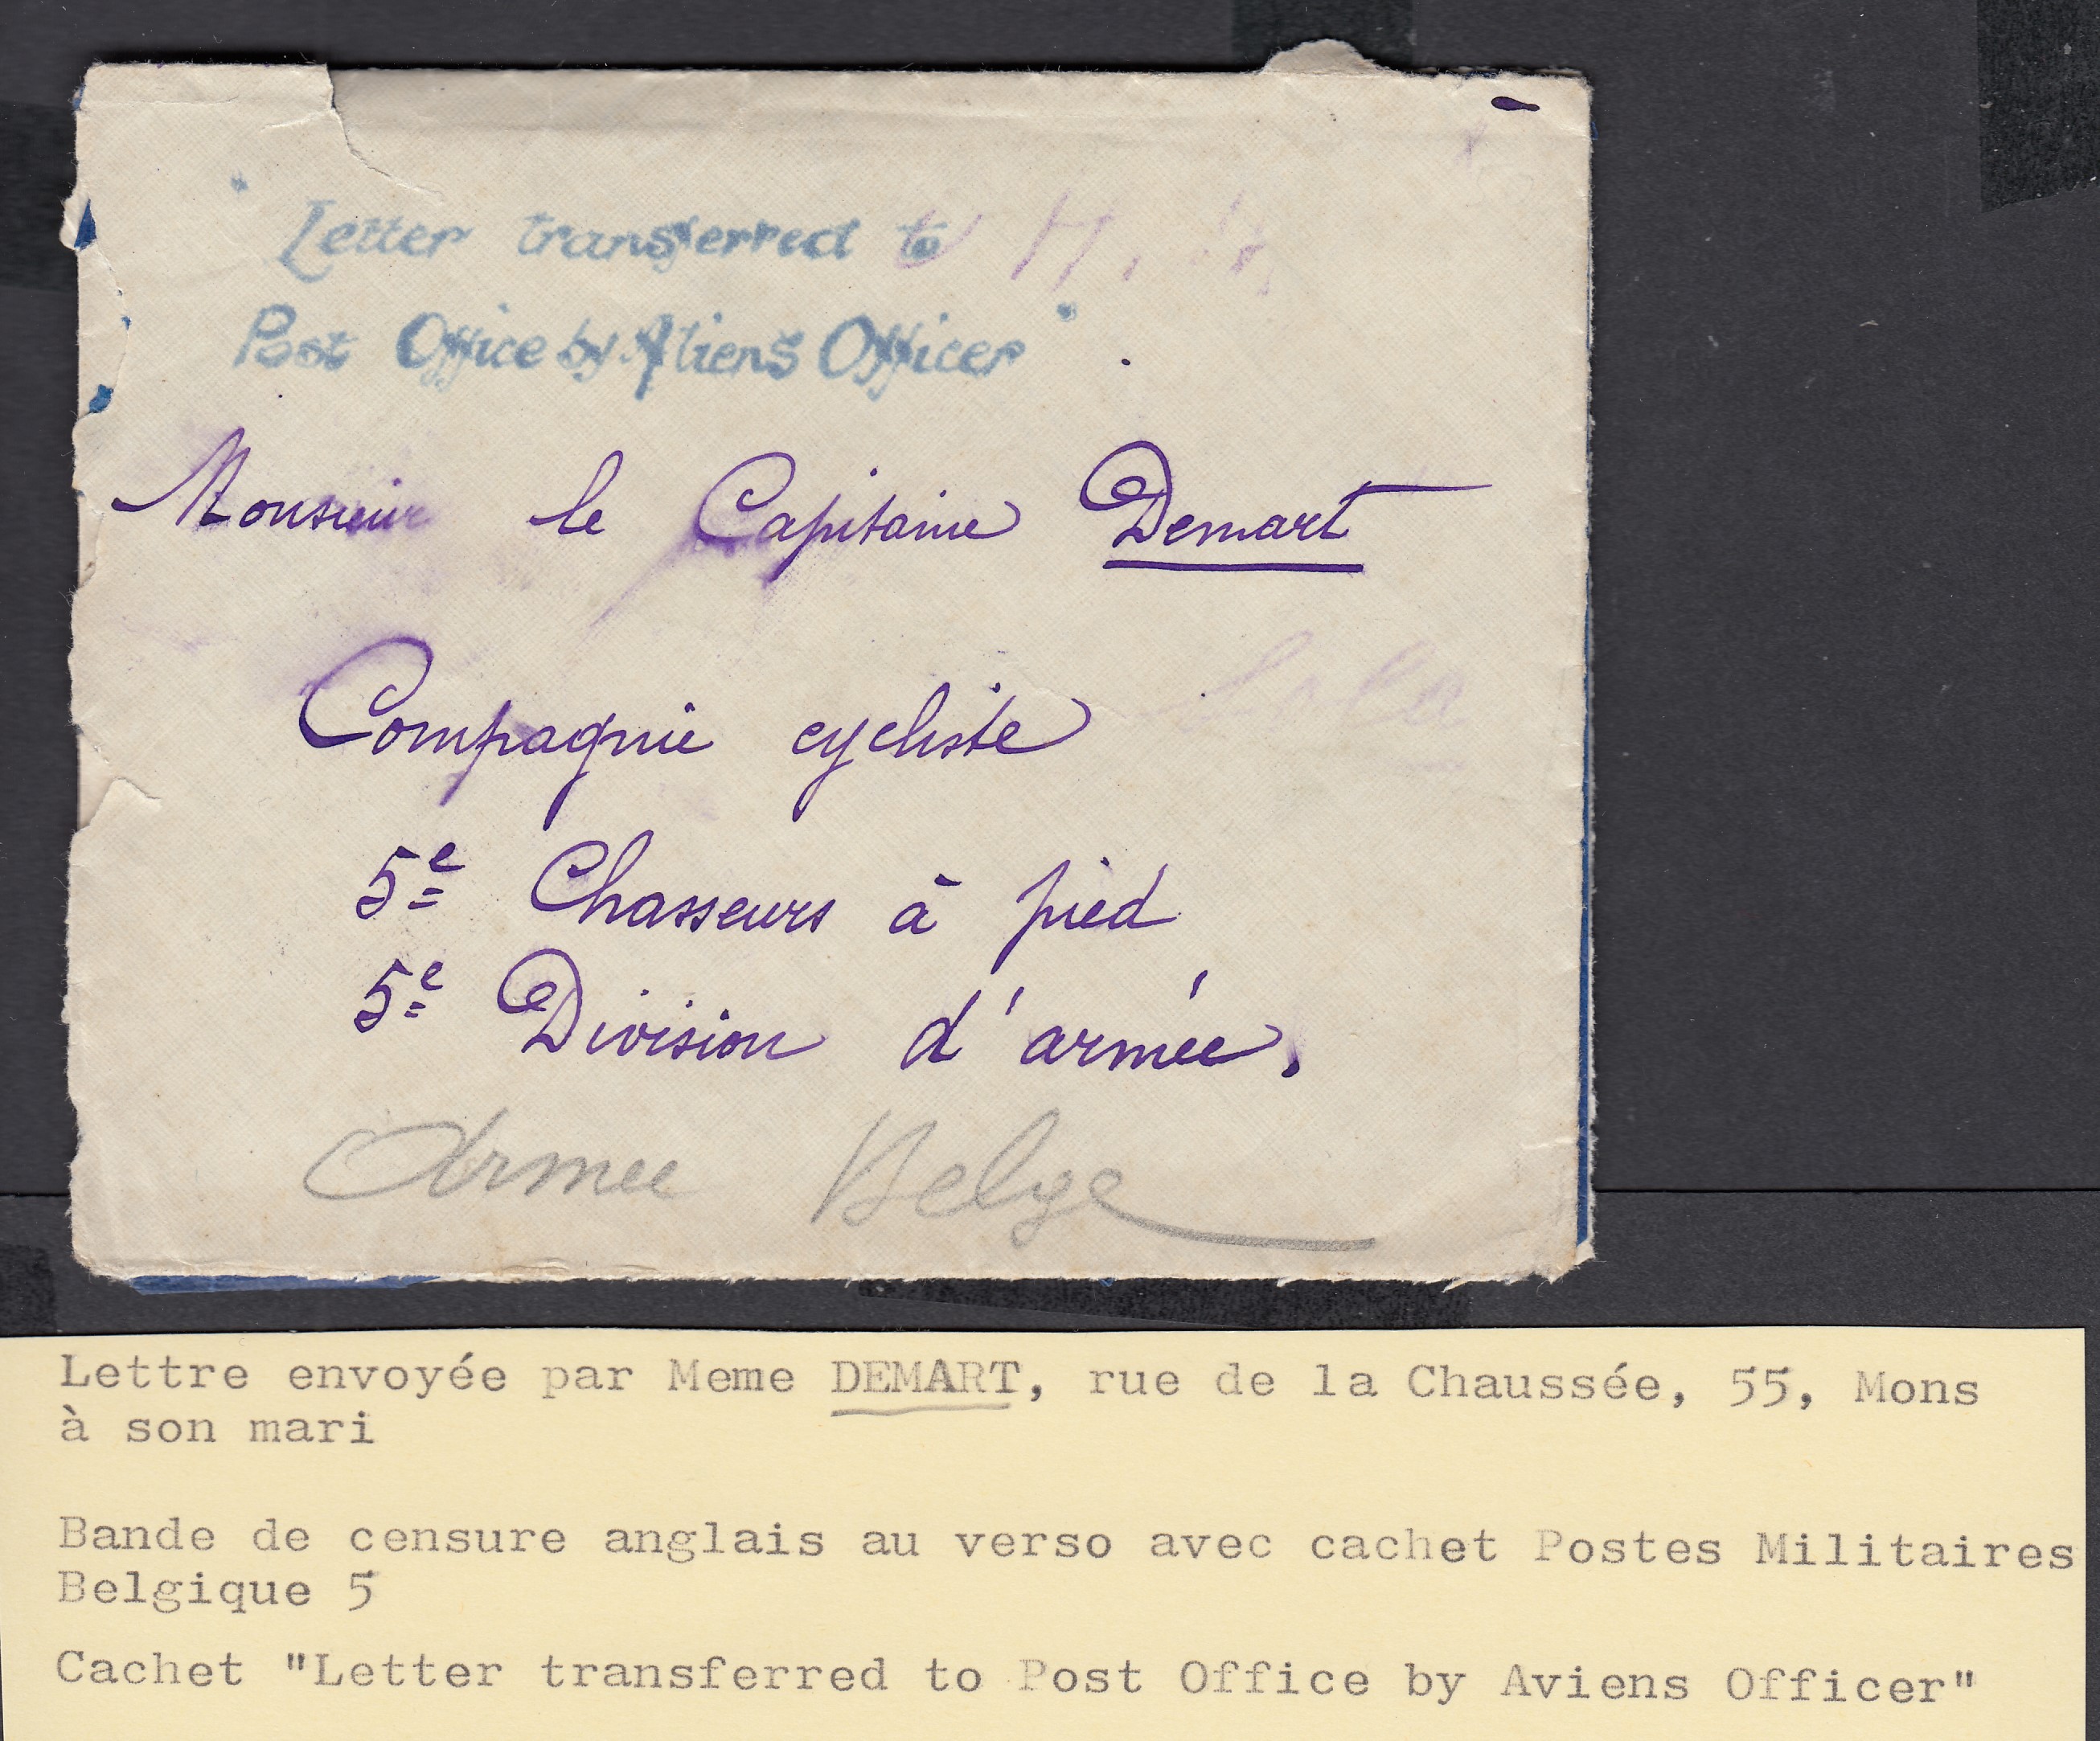 "Letter transferred to
Post Office by Aliens Officer"
Monsieur le Capitaine Demart
Compagnie cycliste
5e Chasseurs à pied
5e Division d'armée.
Armee Belge
Lettre envoyée par Meme DEMART, rue de la Chaussée, 55, Mons
à son mari
Bande de censure anglais au verso avec cachet Postes Militaires
Belgique 5
Cachet "Letter transferred to Post Office by Aviens Officer"